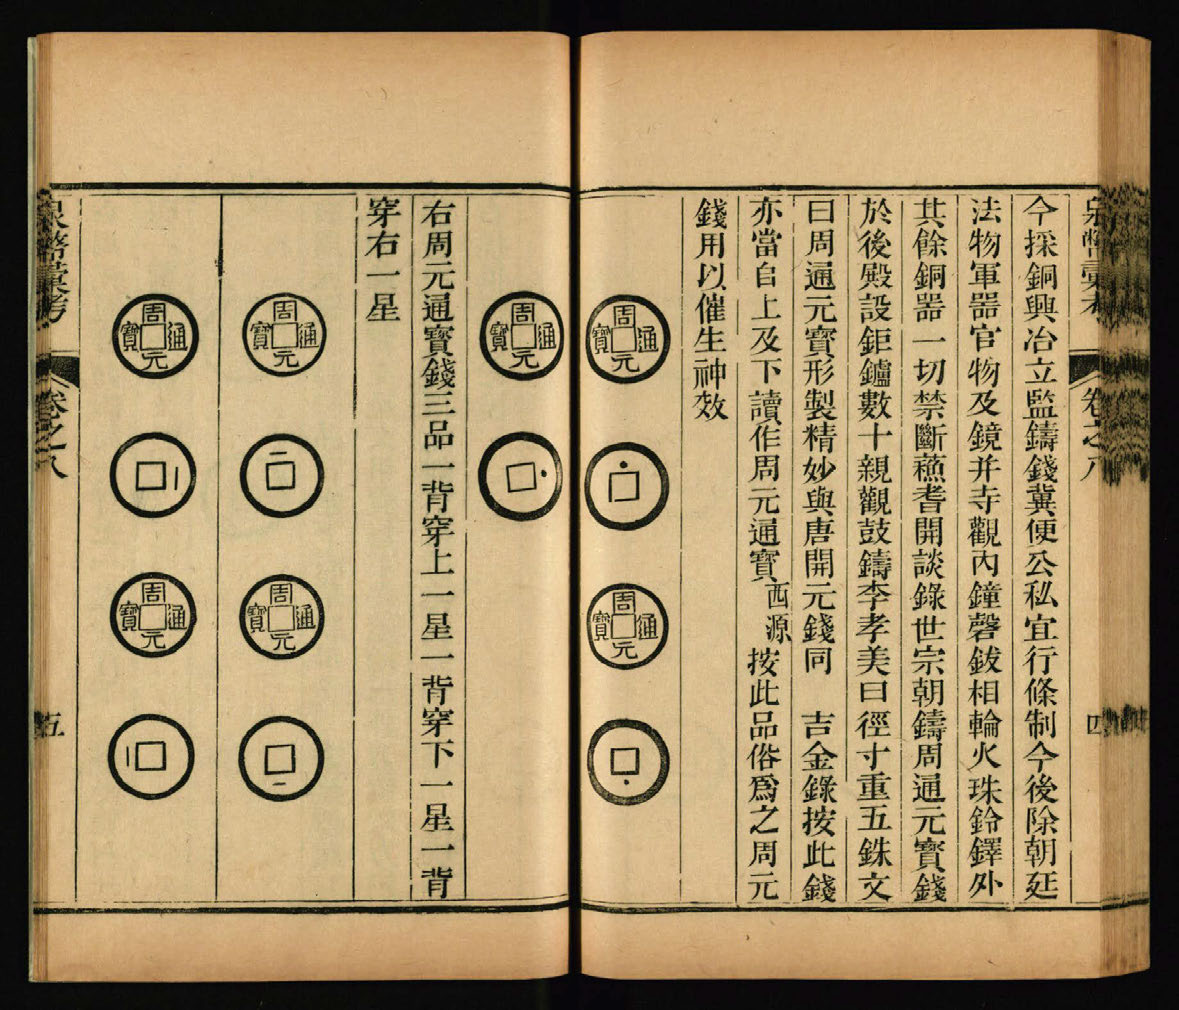 泉幣彙考 卷之八 四
今採銅興冶立監鑄錢冀便公私宜行條制今後除朝廷
法物軍器官物及鏡并寺觀內鐘磬鈸相輪火珠鈴鐸外
其餘銅器一切禁斷蘓耆開談錄世宗朝鑄周通元寶錢
於後殿設鉅鑪數十親觀鼓鑄李孝美曰徑寸重五銖文
曰周通元寶形製精妙與唐開元錢同 吉金錄按此錢
亦當自上及下讀作周元通寶西源按此品俗爲之周元
錢用以催生神效
周元通寶
周元通寶
周元通寶
右周元通寶錢三品一背穿上一星一背穿下一星一背
穿右一星
周元通寶
周元通寶
周元通寶
周元通寶
泉幣彙考 卷之八 五